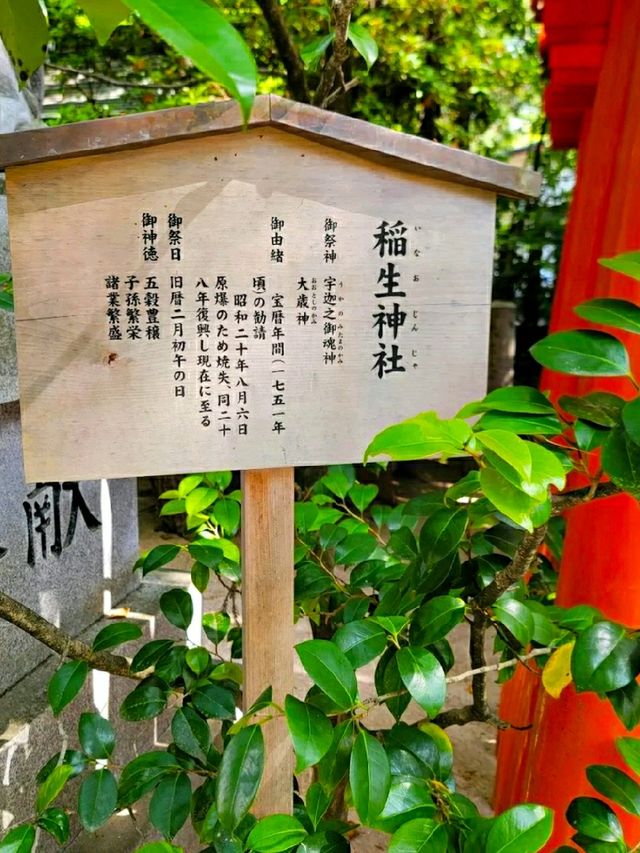 稲生神社
いなおじんじゃ
御祭神 宇迦之御魂神
うかのみたまのかみ
大歳神
おおとしのかみ
御由緒 宝暦年間(一七五一年
頃)の勧請
昭和二十年八月六日
原爆のため焼失、同二十
八年復興し現在に至る
御祭日 旧暦二月初午の日
御神徳 五穀豊穣
子孫繁栄
諸業繁盛
献